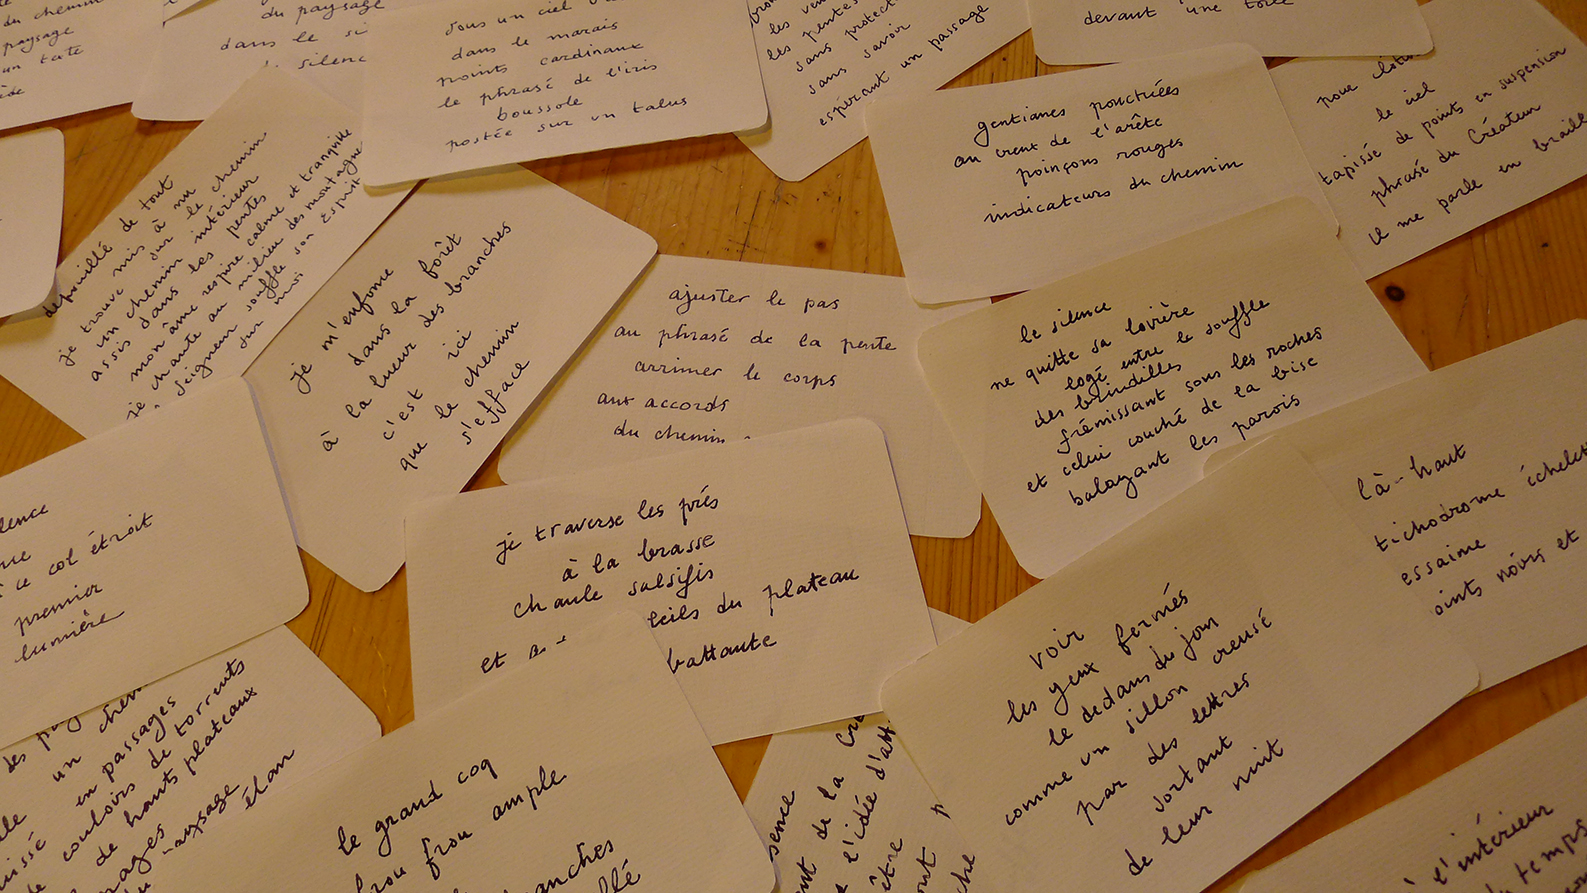 du chemin
paysage
un
du paysage
dans le
silenc
sous un ciel
dans le marais
points cardinaux
le phrasé de l'iris
boussole
postée sur un talus
les
les pentes
sans
sans savoir
espérant un passage
devant une
gentianes ponctuées
au creux de l'arête
poinçons rouges
indicateurs du chemin
pour
le ciel
tapissé de points en suspension
phrasé du Créateur
il me parle en braille
dépouillé de tout
je trouve mis à nu
un chemin sur le chemin
assis dans les pentes
mon âme respire calme et tranquille
je chante au milieu des montagnes
Seigneur souffle son Esprit
sur moi
je m'enfonce
dans la forêt
à la lueur des branches
c'est ici
que le chemin
s'efface
ajuster le pas
au phrasé de la pente
arrimer le corps
aux accords
du chemin
le silence
ne quitte sa lovière
logé entre le souffle
des brindilles
frémissant sous les roches
et celui couché de la bise
balayant les parois
là-haut
tichodrome échelet
essaime
oints noirs et
lence
ce col étroit
premier
lumière
je traverse les prés
à la brasse
chaule salsifis
et
du plateau
battante
voir
les yeux fermés
le dedans du jour
comme un sillon creusé
par des lettres
sortant
de leur nuit
des
un
en passages
couloirs de torrents
de hauts plateaux
élan
le grand coq
frou ample
anches
de la
l'idée
être
l'intérieur
temps